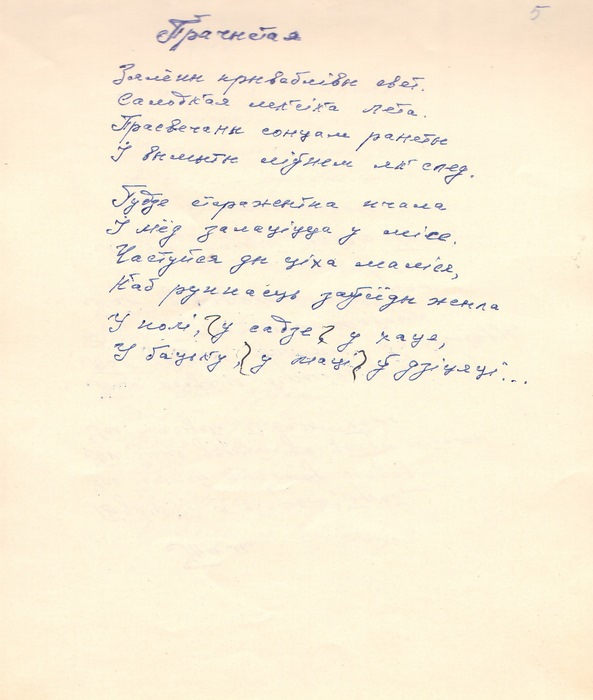 5
Прачыстая
Зялёны прывабливы свет.
Салодкая
лета.
Прасвечаны сонцам ранеты
І вымыты ліўнем як след.
Гудзе старажытна пчала
І мёд залаціцца у місе.
Частуйся ды ціха маліся,
Каб руплівасць заўсёды жыла
У полі, у садзе, у хаце,
У бацьку, у маці, ў дзіцяці...